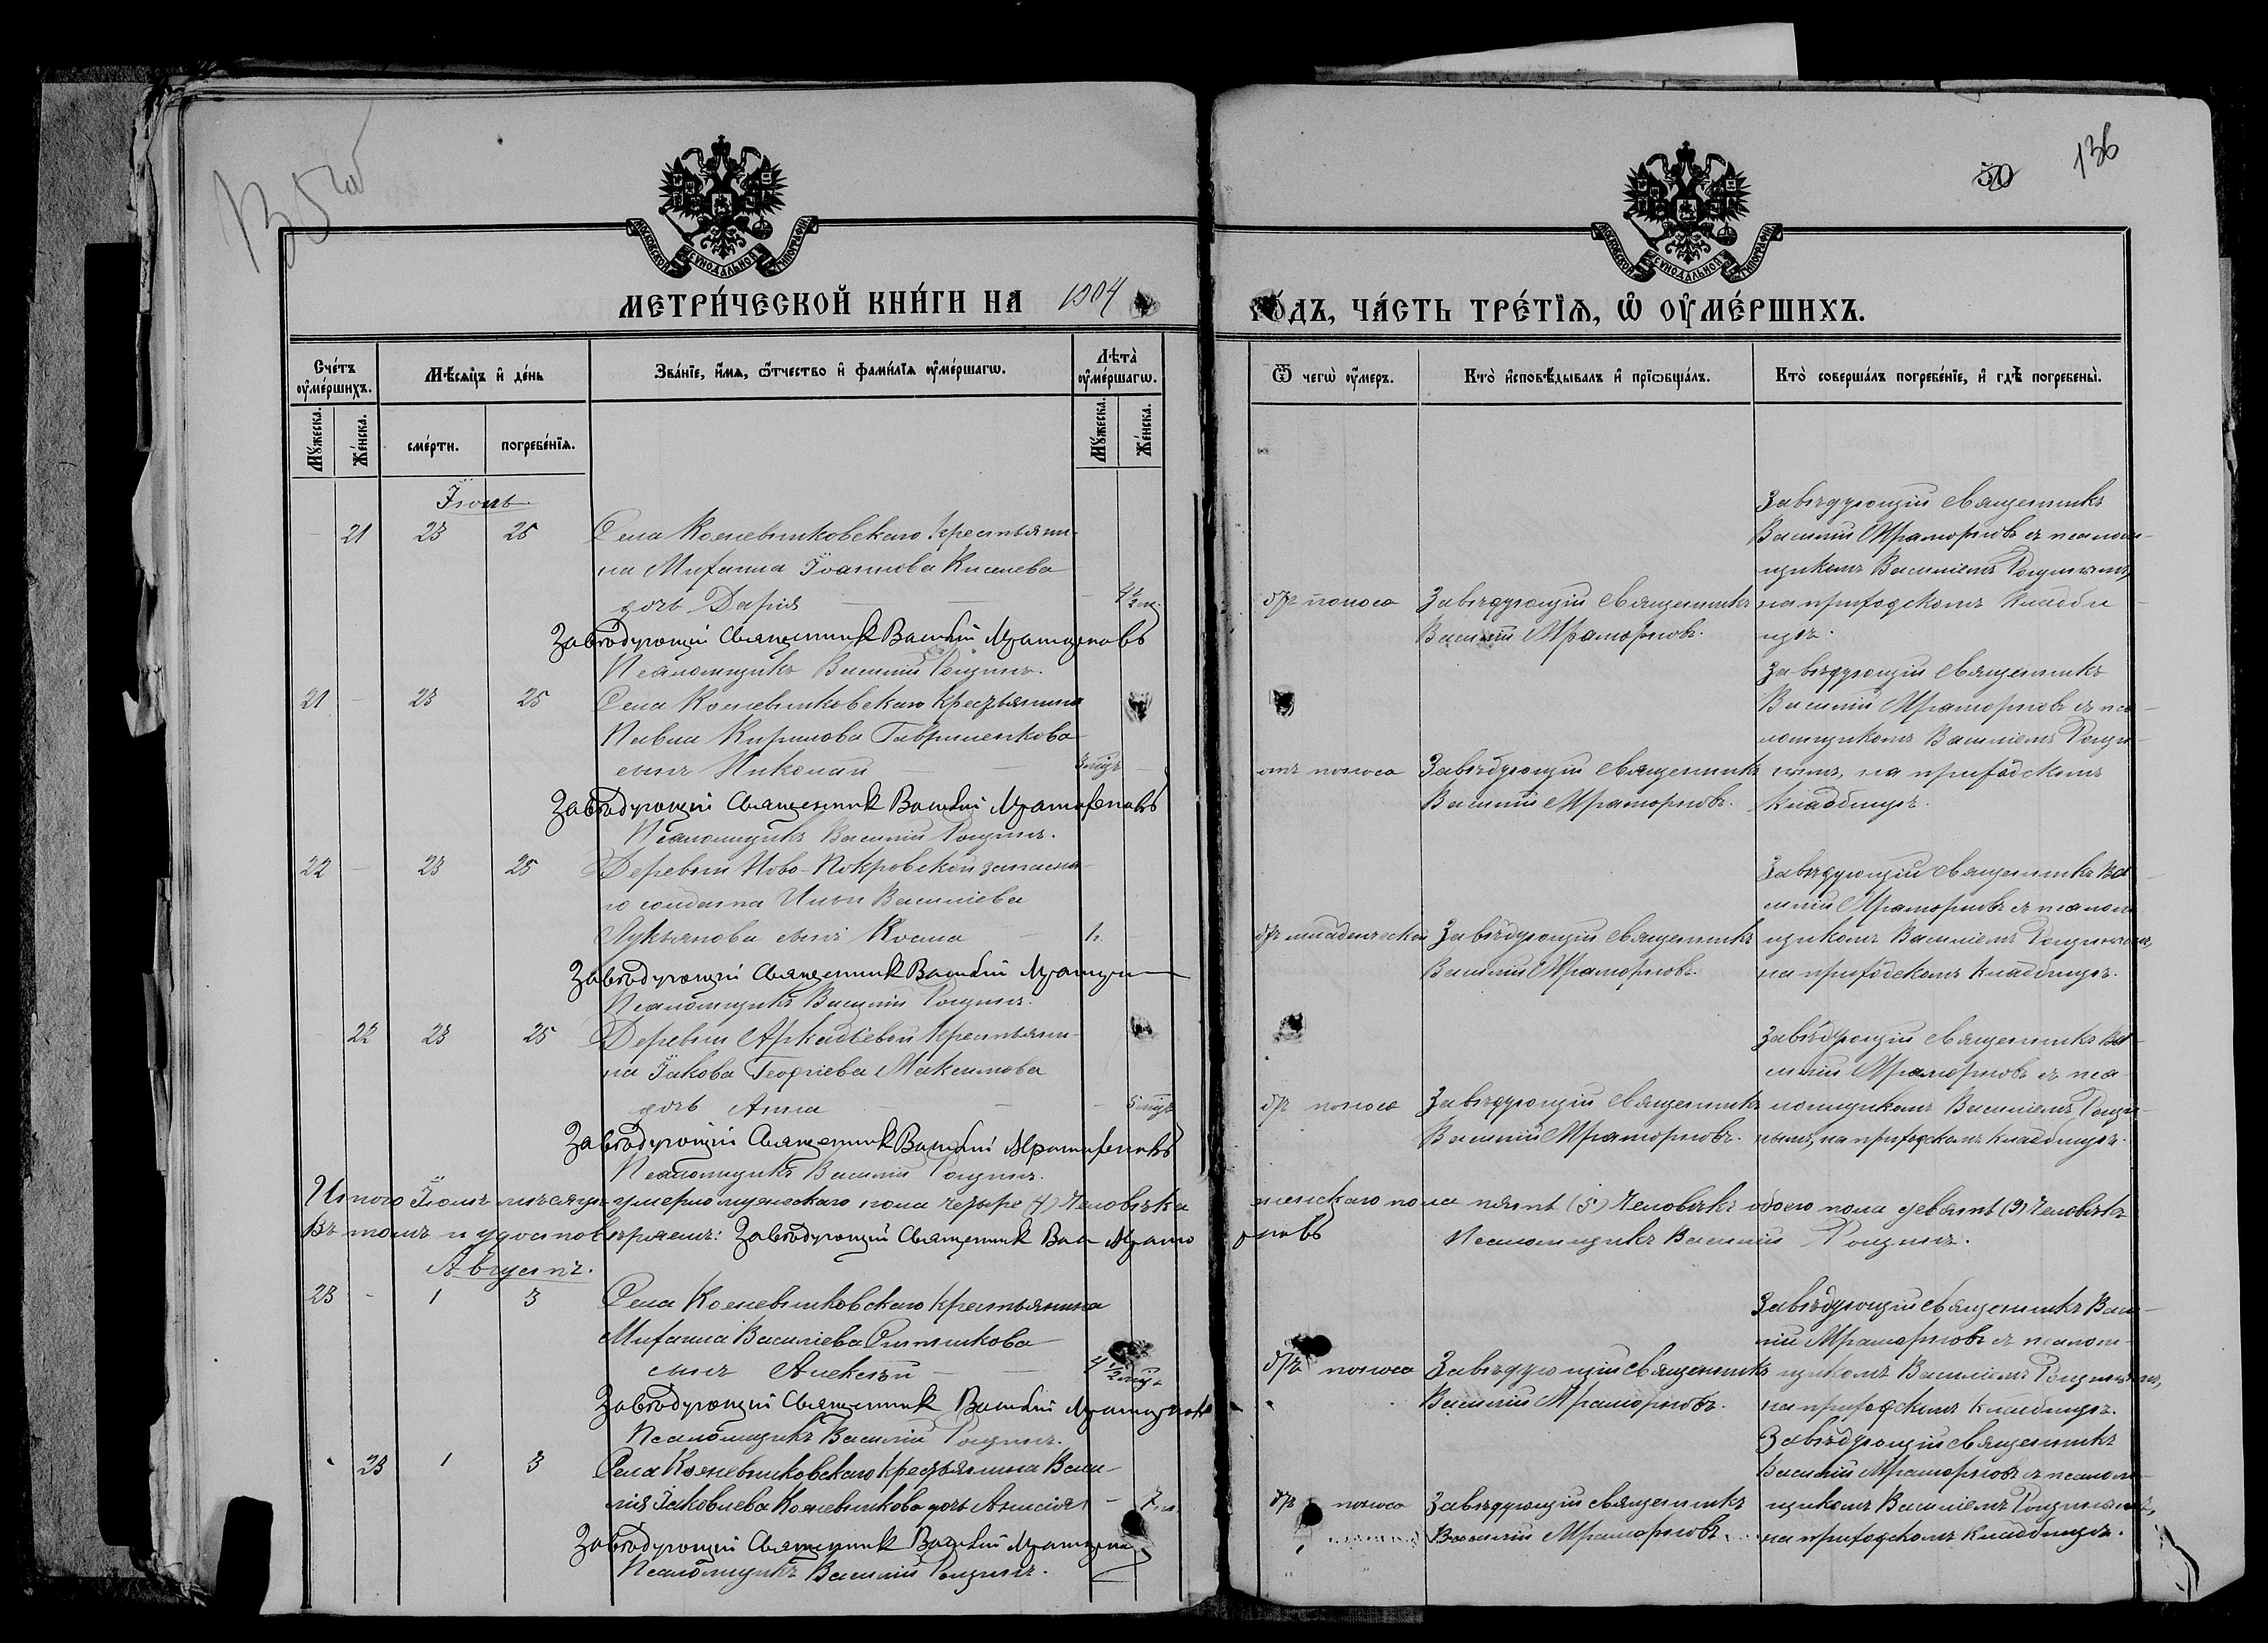 135 об
50
136
МЕТРИ́ЧЕСКОЙ КНИ́ГИ НА 1904
ГО́ДЪ, ЧА́СТЬ ТРЕ́ТІѦ, Ѡ ОУМЕ́РШИХЪ.
Сче́тъ оуме́ршихъ.
Мѣсѧцъ и де́нь
Зва́нїе, и́мѧ, ѻ́тчество и фамилїѧ оуме́ршагѡ.
Лѣта̀ оуме́ршагѡ.
Ѿ чегѡ̀ оу́меръ.
Кто̀ исповѣдывалъ и прїѡбща́лъ.
Кто̀ соверша́лъ погребе́нїе, и гдѣ погребены̀.
Мꙋ́жеска. Же́нска.
сме́рти. погребе́нїѧ.
Мꙋ́жеска. Же́нска.
Іюль
- 21 23 25 Села Кожевниковскаго крестьяни-
на Михаила Іоаннова Киселева
дочь Дарія
Завѣдующій Священник Василий Мраморновъ
Псаломщикъ Василій Рощинъ.
отъ поноса
Завѣдующій Священникъ
Василій Мраморновъ.
Завѣдующій Священникъ
Василій Мраморновъ съ псалом-
щикомъ Василіемъ Рощинымъ,
на приходскомъ кладби
щѣ.
21 - 23 25 Села Кожевниковскаго крестьянина
Павла Кирилова Гавриленкова
сынъ Николай 3 мцъ
Завѣдующій Священник Василий Мраморновъ
Псаломщикъ Василій Рощинъ.
отъ поноса
Завѣдующій Священникъ
Василій Мраморновъ.
Завѣдующій Священникъ
Василій Мраморновъ съ пса-
ломщикомъ Василіемъ Рощи-
нымъ, на приходскомъ
кладбищѣ.
22 - 23 25 Деревни Ново-Покровской запасна-
го солдата Ильи Василіева
Лукьянова сынъ Косма
Завѣдующій Священник Василий
Псаломщикъ Василій Рощинъ.
отъ младенческой
Завѣдующій Священникъ
Василій Мраморновъ.
Завѣдующій Священникъ Ва-
силій Мраморновъ съ псалом-
щикомъ Василіемъ Рощинымъ,
на приходскомъ кладбищѣ.
- 22 23 25 Деревни Аркадіевой крестьяни-
на Іакова Георгіева Максимова
дочь Анна 5 мцъ
Завѣдующій Священник Василий Мраморновъ
Псаломщикъ Василій Рощинъ.
отъ поноса
Завѣдующій Священникъ
Василій Мраморновъ.
Завѣдующій Священникъ Ва-
силій Мраморновъ съ пса-
ломщикомъ Василіемъ Рощи-
нымъ, на приходскомъ кладбищѣ.
Итого Іюль мѣсяцъ умерло мужескаго пола четыре (4) человѣка
женскаго пола пять (5) человѣкъ обоего пола девять (9) человѣкъ
Въ томъ и удостовѣряемъ: Завѣдующій Священник Вас Мрамо
рновъ Псаломщикъ Василій Рощинъ.
Августъ.
23 - 1 3 Села Кожевниковскаго крестьянина
Михаила Василіева Ситникова
сынъ Алексѣй 4 1/2 мц
Завѣдующій Священник Василий Мраморновъ
Псаломщикъ Василій Рощинъ.
отъ поноса
Завѣдующій Священникъ
Василій Мраморновъ.
Завѣдующій Священникъ Васи-
лій Мраморновъ съ псалом-
щикомъ Василіемъ Рощинымъ,
на приходскомъ кладбищѣ.
- 23 1 3 Села Кожевниковскаго крестьянина Васи-
лія Іаковлева Кожевникова дочь Анисія 7 м.
Завѣдующій Священник Василий
Псаломщикъ Василій Рощинъ.
отъ поноса
Завѣдующій Священникъ
Василій Мраморновъ.
Завѣдующій Священникъ
Василій Мраморновъ съ псалом-
щикомъ Василіемъ Рощинымъ,
на приходскомъ кладбищѣ.